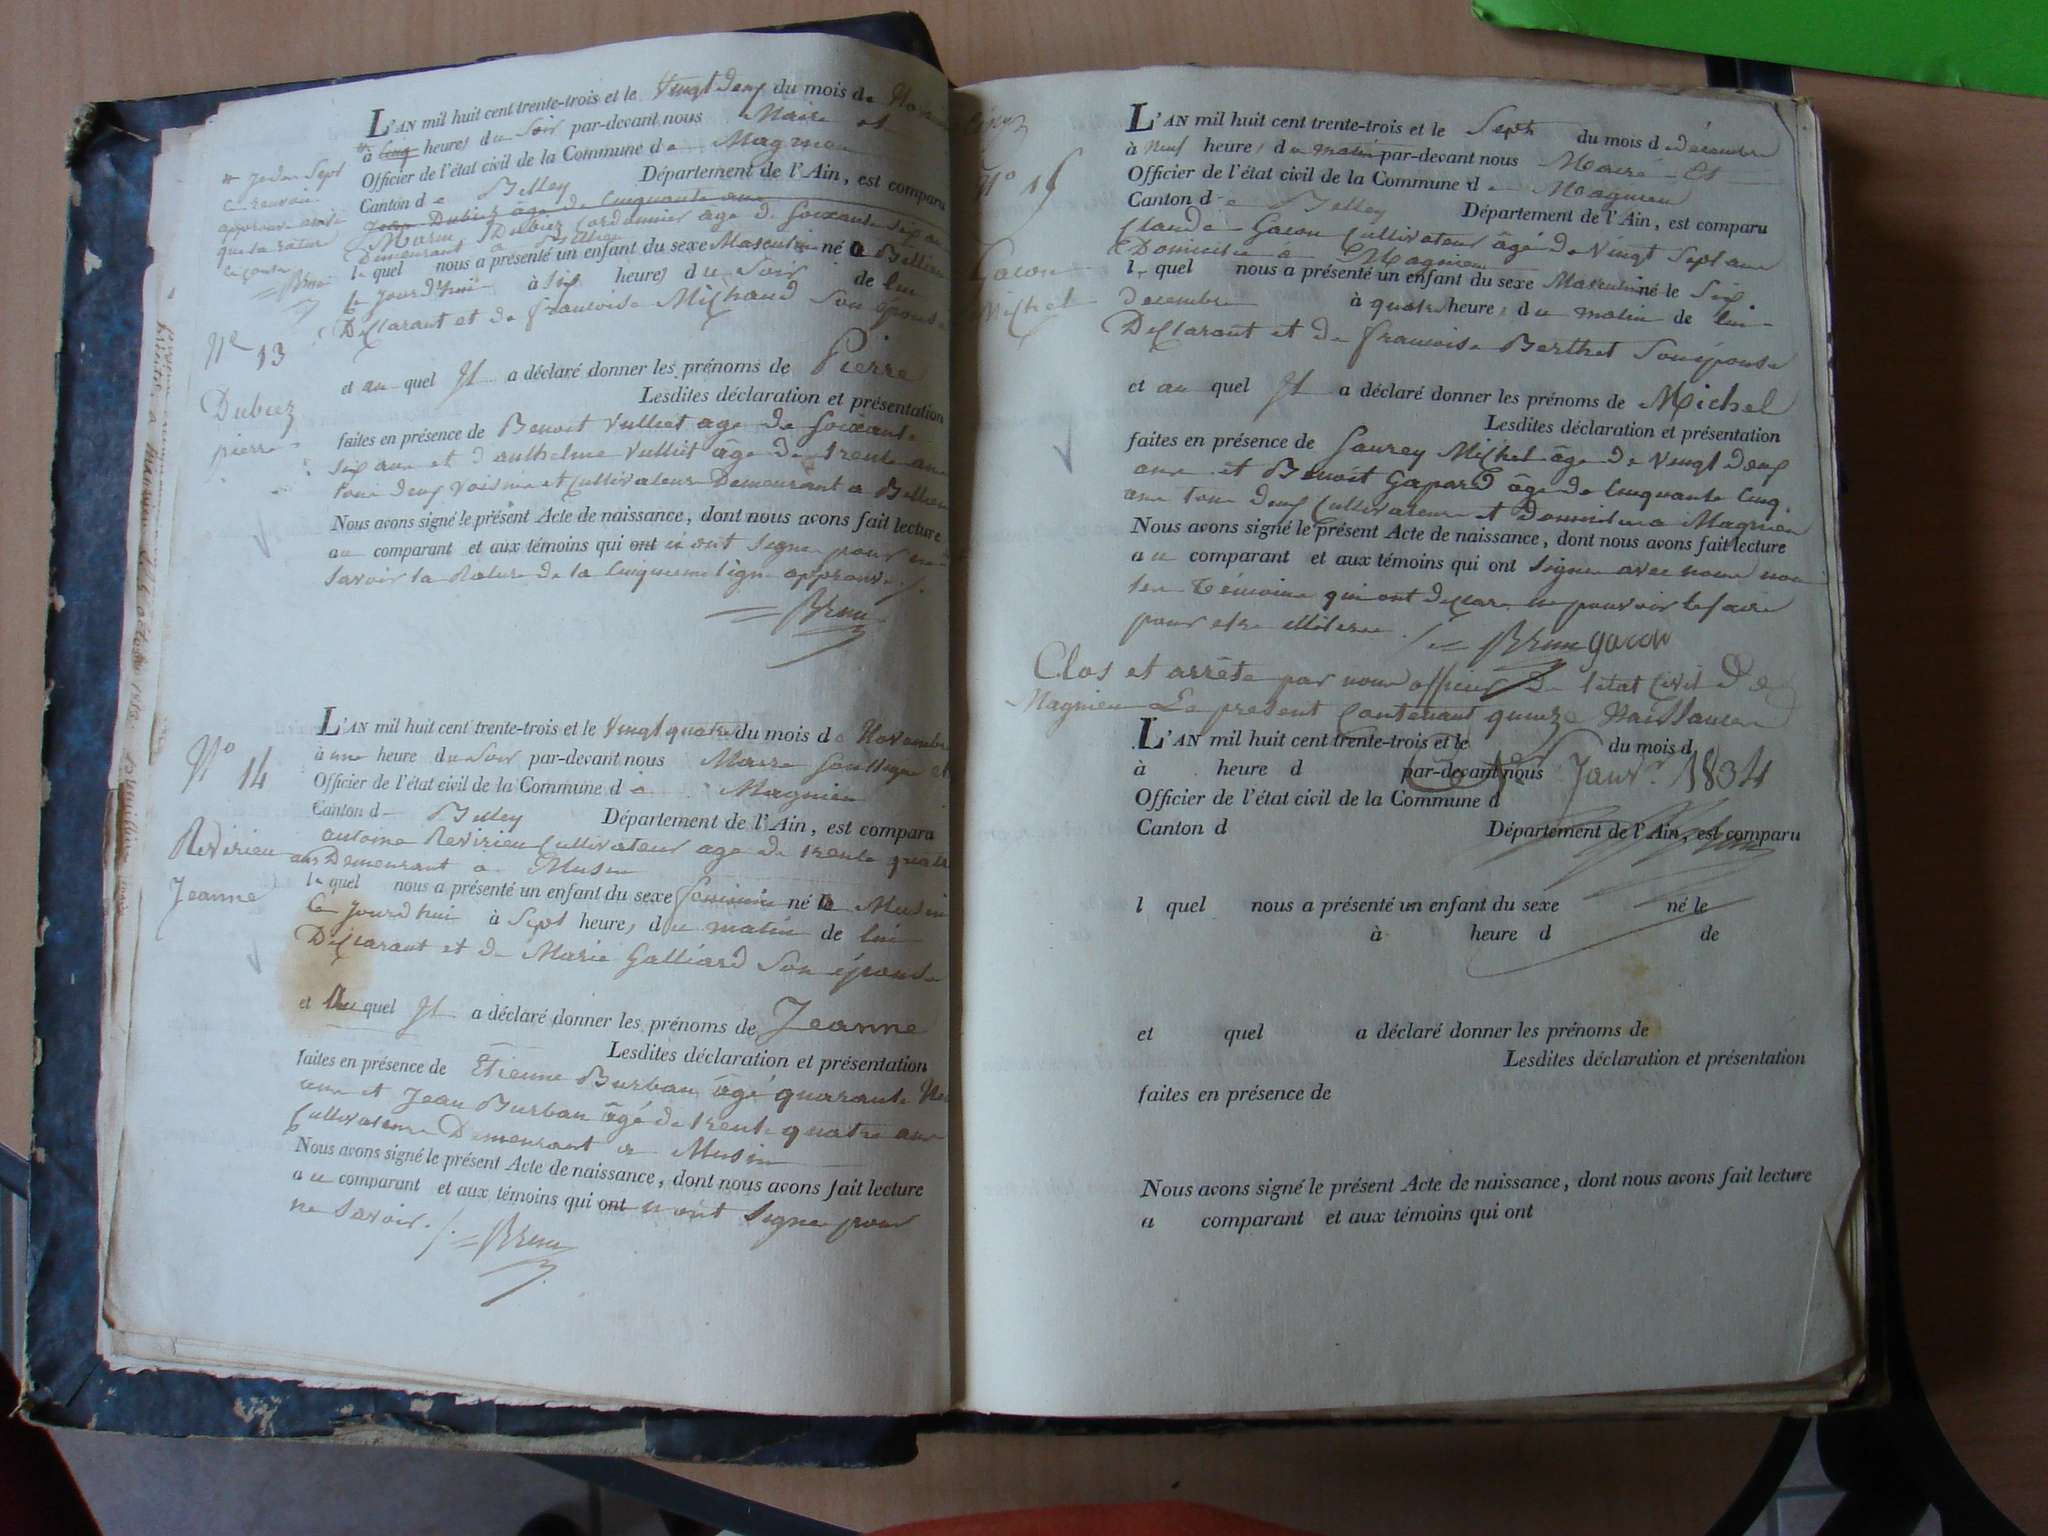 L'AN mil huit cent trente-trois et le Vingt deux du mois de
à cinq heures du Soir par-devant nous Maire et
Officier de l'état civil de la Commune de Magnieu
Canton de Belley Département de l'Ain, est comparu
Jean Dubiez âgé de Cinquante ans
Marin Dubiez Cordonnier age de Soixante Six ans
Demeurant a
le quel nous a présenté un enfant du sexe Masculin né a Billieu
Ce Jourd'hui à Six heures du Soir de lui
Déclarant et de francoise Michaud Son épouse
et au quel Il a déclaré donner les prénoms de Pierre
Lesdites déclaration et présentation
faites en présence de Benoit Vulliet age de Soixante
Six ans et d'anthelme Vulliet âgé de trente ans
tous deux voisins et Cultivateurs Demeurant a Billieu
Nous avons signé le présent Acte de naissance, dont nous avons fait lecture
au comparant et aux témoins qui ont n'ont Signe pour ne
Savoir la Rature de la Cinquieme ligne approuvé
Brun
Nº 13
Dubiez
pierre
L'AN mil huit cent trente-trois et le Vingt quatre du mois de Novembre
à une heure du Soir par-devant nous Maire Soussigné et
Officier de l'état civil de la Commune de Magnieu
Canton d Belley Département de l'Ain, est comparu
antoine Revirieu Cultivateur age de trente quatre
ans Demeurant a Musin
le quel nous a présenté un enfant du sexe feminin né le a Musin
Ce Jourd'hui à Sept heures du matin de lui
Déclarant et de Marie Galliard Son épouse
et Au quel Il a déclaré donner les prénoms de Jeanne
Lesdites déclaration et présentation
faites en présence de Etienne Burban âgé quarante
ans et Jean Burban âgé de trente quatre ans
Cultivateurs Demeurant a Musin
Nous avons signé le présent Acte de naissance, dont nous avons fait lecture
au comparant et aux témoins qui ont n'ont Signe pour
ne Savoir.
Brun
Nº 14
Revirieu
Jeanne
L'AN mil huit cent trente-trois et le Sept du mois de décembre
à Neuf heures du matin par-devant nous Maire Et
Officier de l'état civil de la Commune de Magnieu
Canton de Belley Département de l'Ain, est comparu
Claude Gacon Cultivateur âgé de Vingt Sept ans
Domicilié à Magnieu
le quel nous a présenté un enfant du sexe Masculin né le Six
decembre à quatre heures du matin de lui
Déclarant et de francoise Berthet Son épouse
et au quel Il a déclaré donner les prénoms de Michel
Lesdites déclaration et présentation
faites en présence de Michel âgé de Vingt Deux
ans et Benoit Gapard âgé de Cinquante Cinq
ans tous deux Cultivateurs et Domiciliés a Magnieu
Nous avons signé le présent Acte de naissance, dont nous avons fait lecture
au comparant et aux témoins qui ont Signe avec nous non
les témoins qui ont déclaré ne pouvoir le faire
pour etre
Brun gacon
Nº 15
Gacon
Michel
Clos et arrêté par nous officier De l'état Civil De
Magnieu Le present Contenant quinze Naissances
L'AN mil huit cent trente-trois et le du mois d
Ce 1er Janvr 1834
à heure d par-devant nous
Officier de l'état civil de la Commune d
Canton d Département de l'Ain, est comparu
Brun
l quel nous a présenté un enfant du sexe né le
à heure d de
et quel a déclaré donner les prénoms de
Lesdites déclaration et présentation
faites en présence de
Nous avons signé le présent Acte de naissance, dont nous avons fait lecture
a comparant et aux témoins qui ont